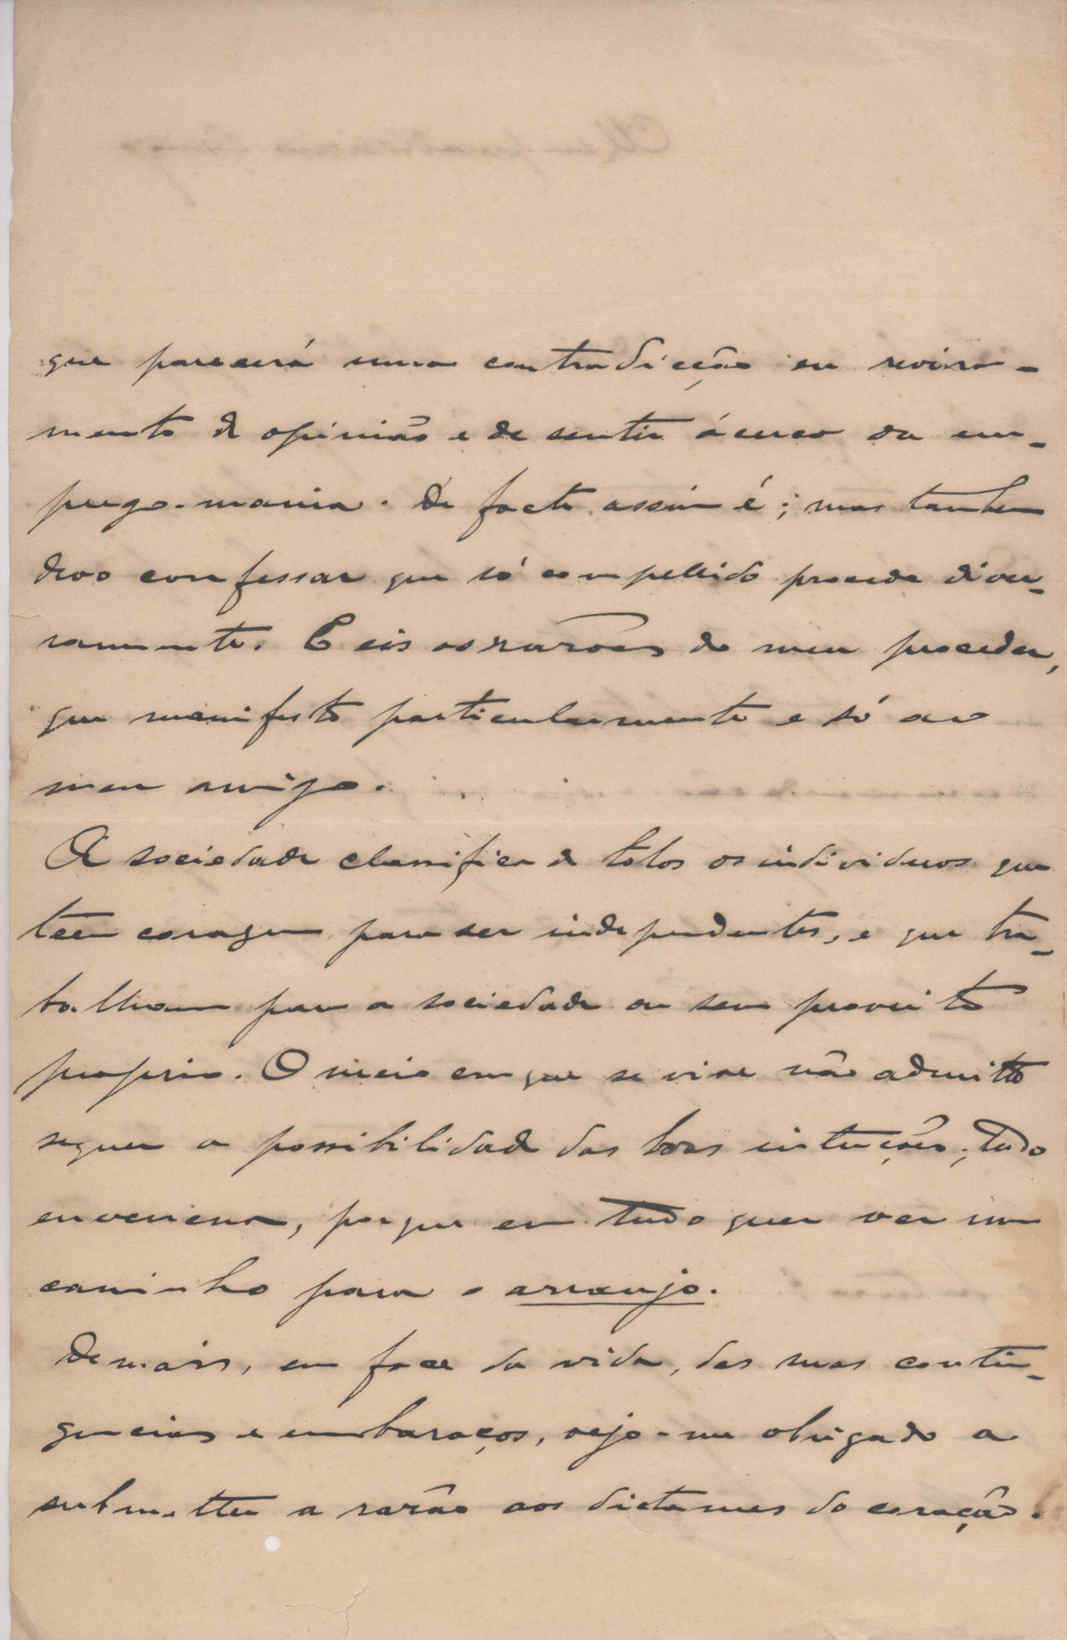 que parecerá uma contradicção ou revira-
mento de opinião e de sentir ácerca da em-
prego-mania. De facto assim é; mas tambem
devo confessar que só compellido procedo diver-
samente. E eis as razões do meu proceder,
que manifesto particularmente e só ao
meu amigo.
A sociedade classifica de tolos os individuos que
teem coragem para ser independentes, e que tra-
balham para a sociedade ou sem proveito
proprio. O meio em que se vive não admitte
sequer a possibilidade das boas intenções; tudo
envenena, porque em tudo quer ver um
caminho para o arranjo.
Demais, em face da vida, das suas contin-
gencias e embaraços, vejo-me obrigado a
submetter a razão aos dictames do coração.